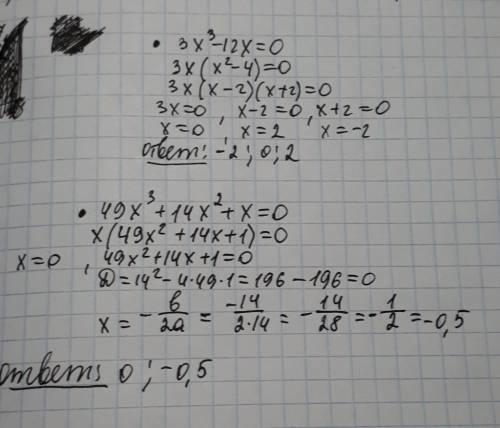 • 3x³-12x=0
3x(x²-4)=0
3x(x-2)(x+2)=0
3x=0 , x-2=0, x+2=0
x=0 , x=2 x=-2
ответ: -2; 0; 2
• 49x³+14x²+x=0
x(49x²+14x+1)=0
x=0 , 49x²+14x+1=0
D=14²-4·49·1=196-196=0
x = -в/2a = -14/2·14 = -14/28 = -1/2 = -0,5
ответ: 0; -0,5